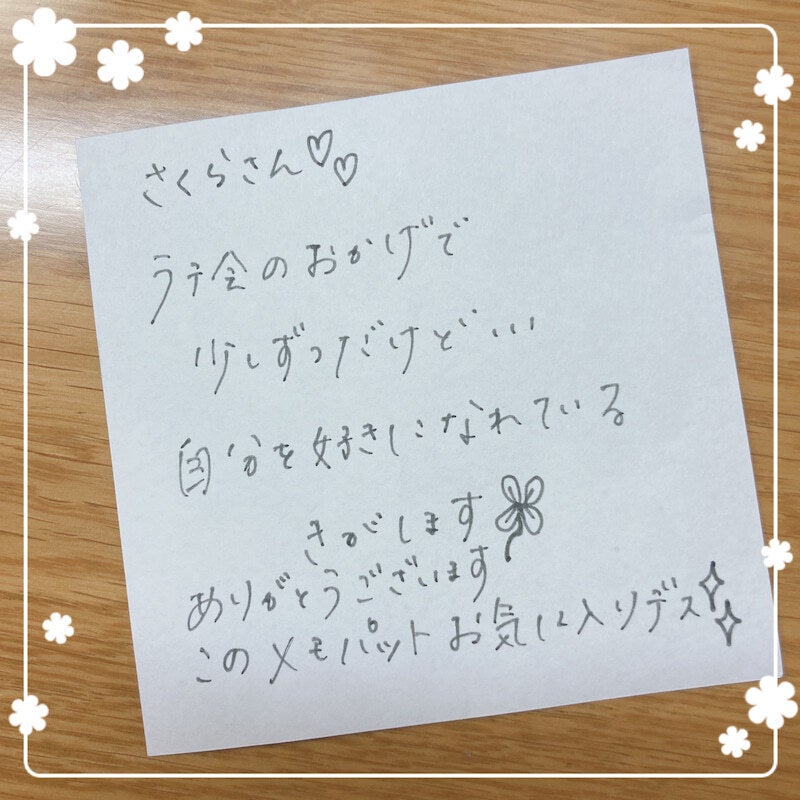 さくらさん♡♡
ラテ会のおかげで
少しずつだけど…
自分を好きになれている
きがします
ありがとうございます
このメモパットお気に入りデス